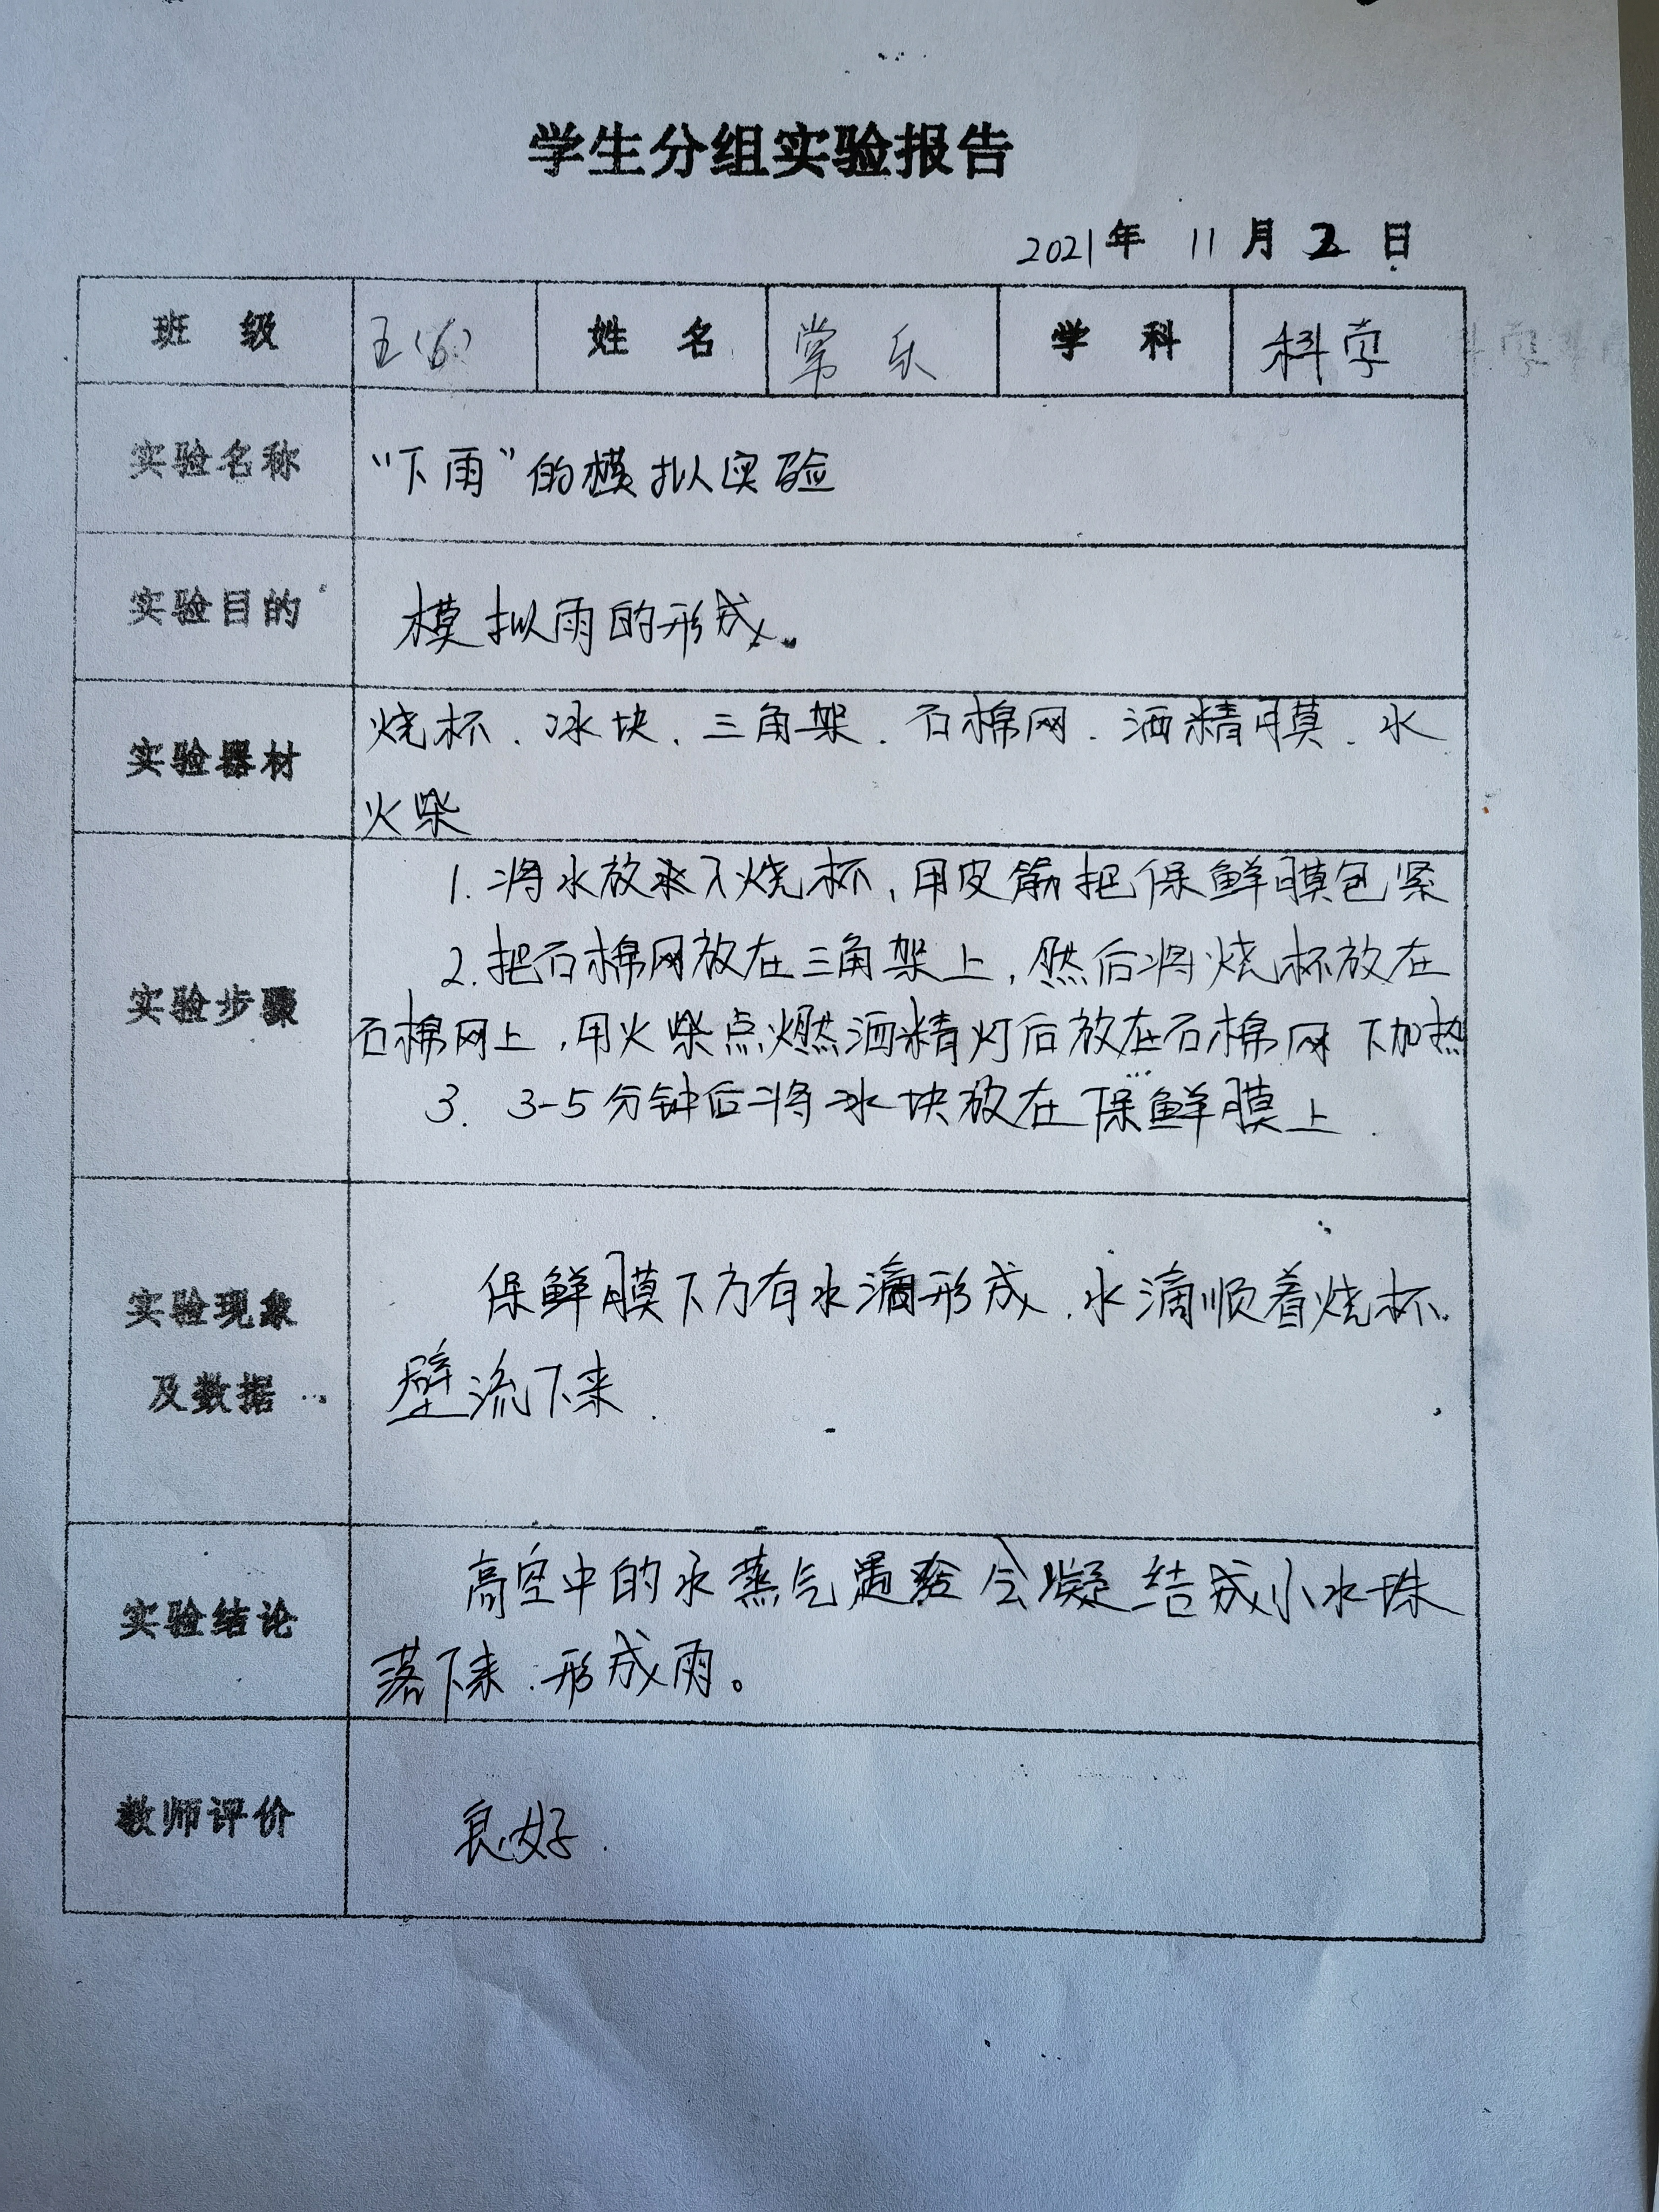 学生分组实验报告
2021年 11月 2 日
班 级 五(6) 姓 名 常乐 学 科 科学
实验名称 “下雨”的模拟实验
实验目的 模拟雨的形成。
实验器材 烧杯、冰块、三角架、石棉网、洒精膜、水
火柴
1. 将水放入烧杯,用皮筋把保鲜膜包紧
2. 把石棉网放在三角架上,然后将烧杯放在
实验步骤
石棉网上,用火柴点燃洒精灯后放在石棉网下加热
3. 3-5分钟后将冰块放在保鲜膜上.
实验现象 保鲜膜下方有水滴形成,水滴顺着烧杯
及数据 壁流下来.
实验结论 高空中的水蒸气遇 会凝结成小水珠
落下来.形成雨。
教师评价 良好.